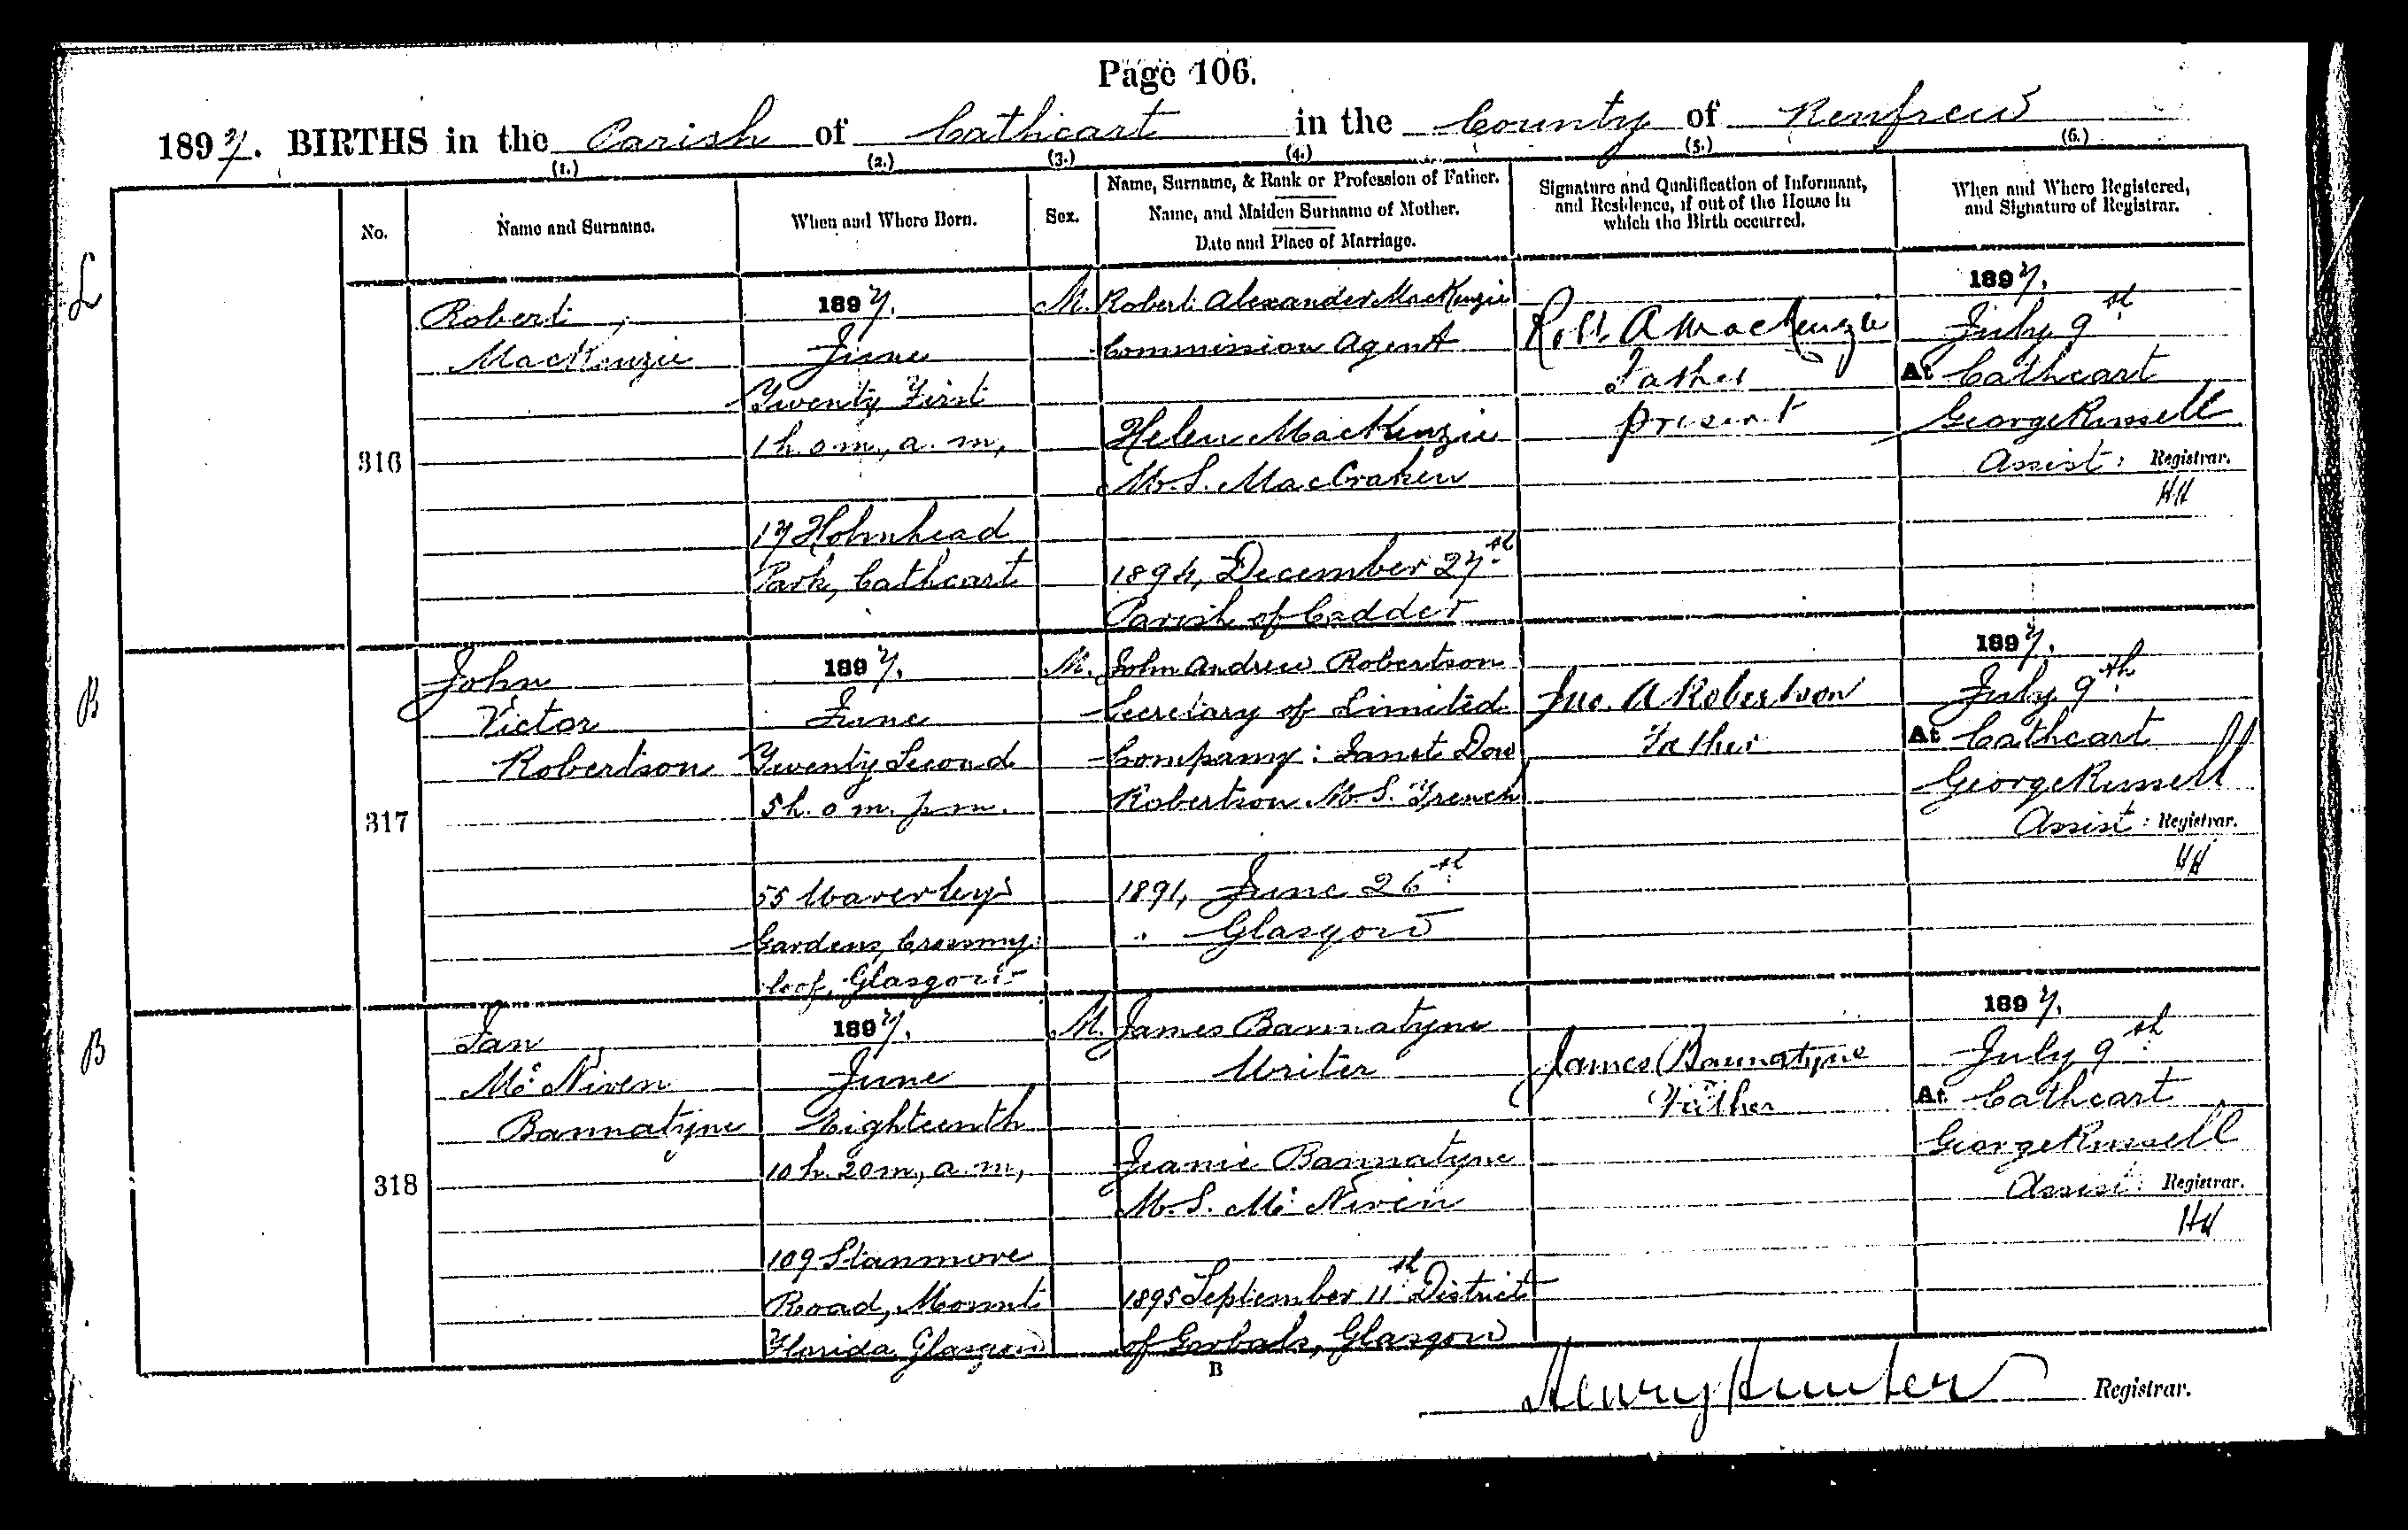 Page 106.
1897. BIRTHS in the Parish of Cathcart in the County of Renfrew
(1.) (2.) (3.) (4.) (5.) (6.)
No.
Name and Surname.
When and Where Born.
Sex.
Name, Surname, & Rank or Profession of Father.
Name, and Maiden Surname of Mother.
Date and Place of Marriage.
Signature and Qualification of Informant,
and Residence, if out of the House in
which the Birth occurred.
When and Where Registered,
and Signature of Registrar.
316
Robert
MacKenzie
1897.
June
Twenty First
1 h. 0 m., a. m,
17 Holmhead
Park, Cathcart
M.
Robert Alexander MacKenzie
Commission Agent
Helen MacKenzie
M.S. MacCraken
1894, December 27th
Parish of Cadder
Robt. A MacKenzie
Father
present
1897.
July 9th
At Cathcart
George Russell
Assist: Registrar.
HH
B
317
John
Victor
Robertson
1897.
June
Twenty Second
5 h. 0 m. p.m.
55 Waverley
Gardens, Crossmy-
loof, Glasgow
M.
John Andrew Robertson
Secretary of Limited
Company: Janet Dow
Robertson M.S. French
1891, June 26th
Glasgow
Jno. A Robertson
Father
1897.
July 9th
At Cathcart
George Russell
Assist: Registrar.
HH
B
318
Ian
Mc Niven
Bannatyne
1897.
June
Eighteenth
10 h. 20 m, a. m,
109 Stanmore
Road, Mount
Florida, Glasgow
M.
James Bannatyne
Writer
Jeanie Bannatyne
M.S. Mc Niven
1895 September 11th District
of Gorbals, Glasgow
James Bannatyne
Father
1897.
July 9th
At Cathcart
George Russell
Assist: Registrar.
HH
B
Henry Hunter Registrar.